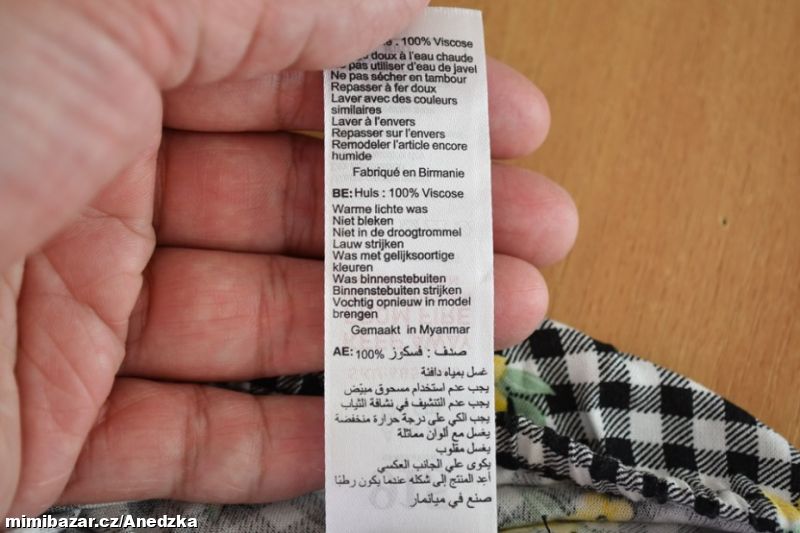 : 100% Viscose
doux à l'eau chaude
Ne pas utiliser d'eau de javel
Ne pas sécher en tambour
Repasser à fer doux
Laver avec des couleurs
similaires
Laver à l'envers
Repasser sur l'envers
Remodeler l'article encore
humide
Fabriqué en Birmanie
BE: Huls : 100% Viscose
Warme lichte was
Niet bleken
Niet in de droogtrommel
Lauw strijken
Was met gelijksoortige
kleuren
Was binnenstebuiten
Binnenstebuiten strijken
Vochtig opnieuw in model
brengen
Gemaakt in Myanmar
AE: 100% صدف : فسكوز
غسل بمياه دافئة
يجب عدم استخدام مسحوق مبيّض
يجب عدم التنشيف في نشافة الثياب
يجب الكي على درجة حرارة منخفضة
يغسل مع ألوان مماثلة
يغسل مقلوب
يكوى علي الجانب العكسي
أعد المنتج إلى شكله عندما يكون رطبًا
صنع في ميانمار
mimibazar.cz/Anedzka